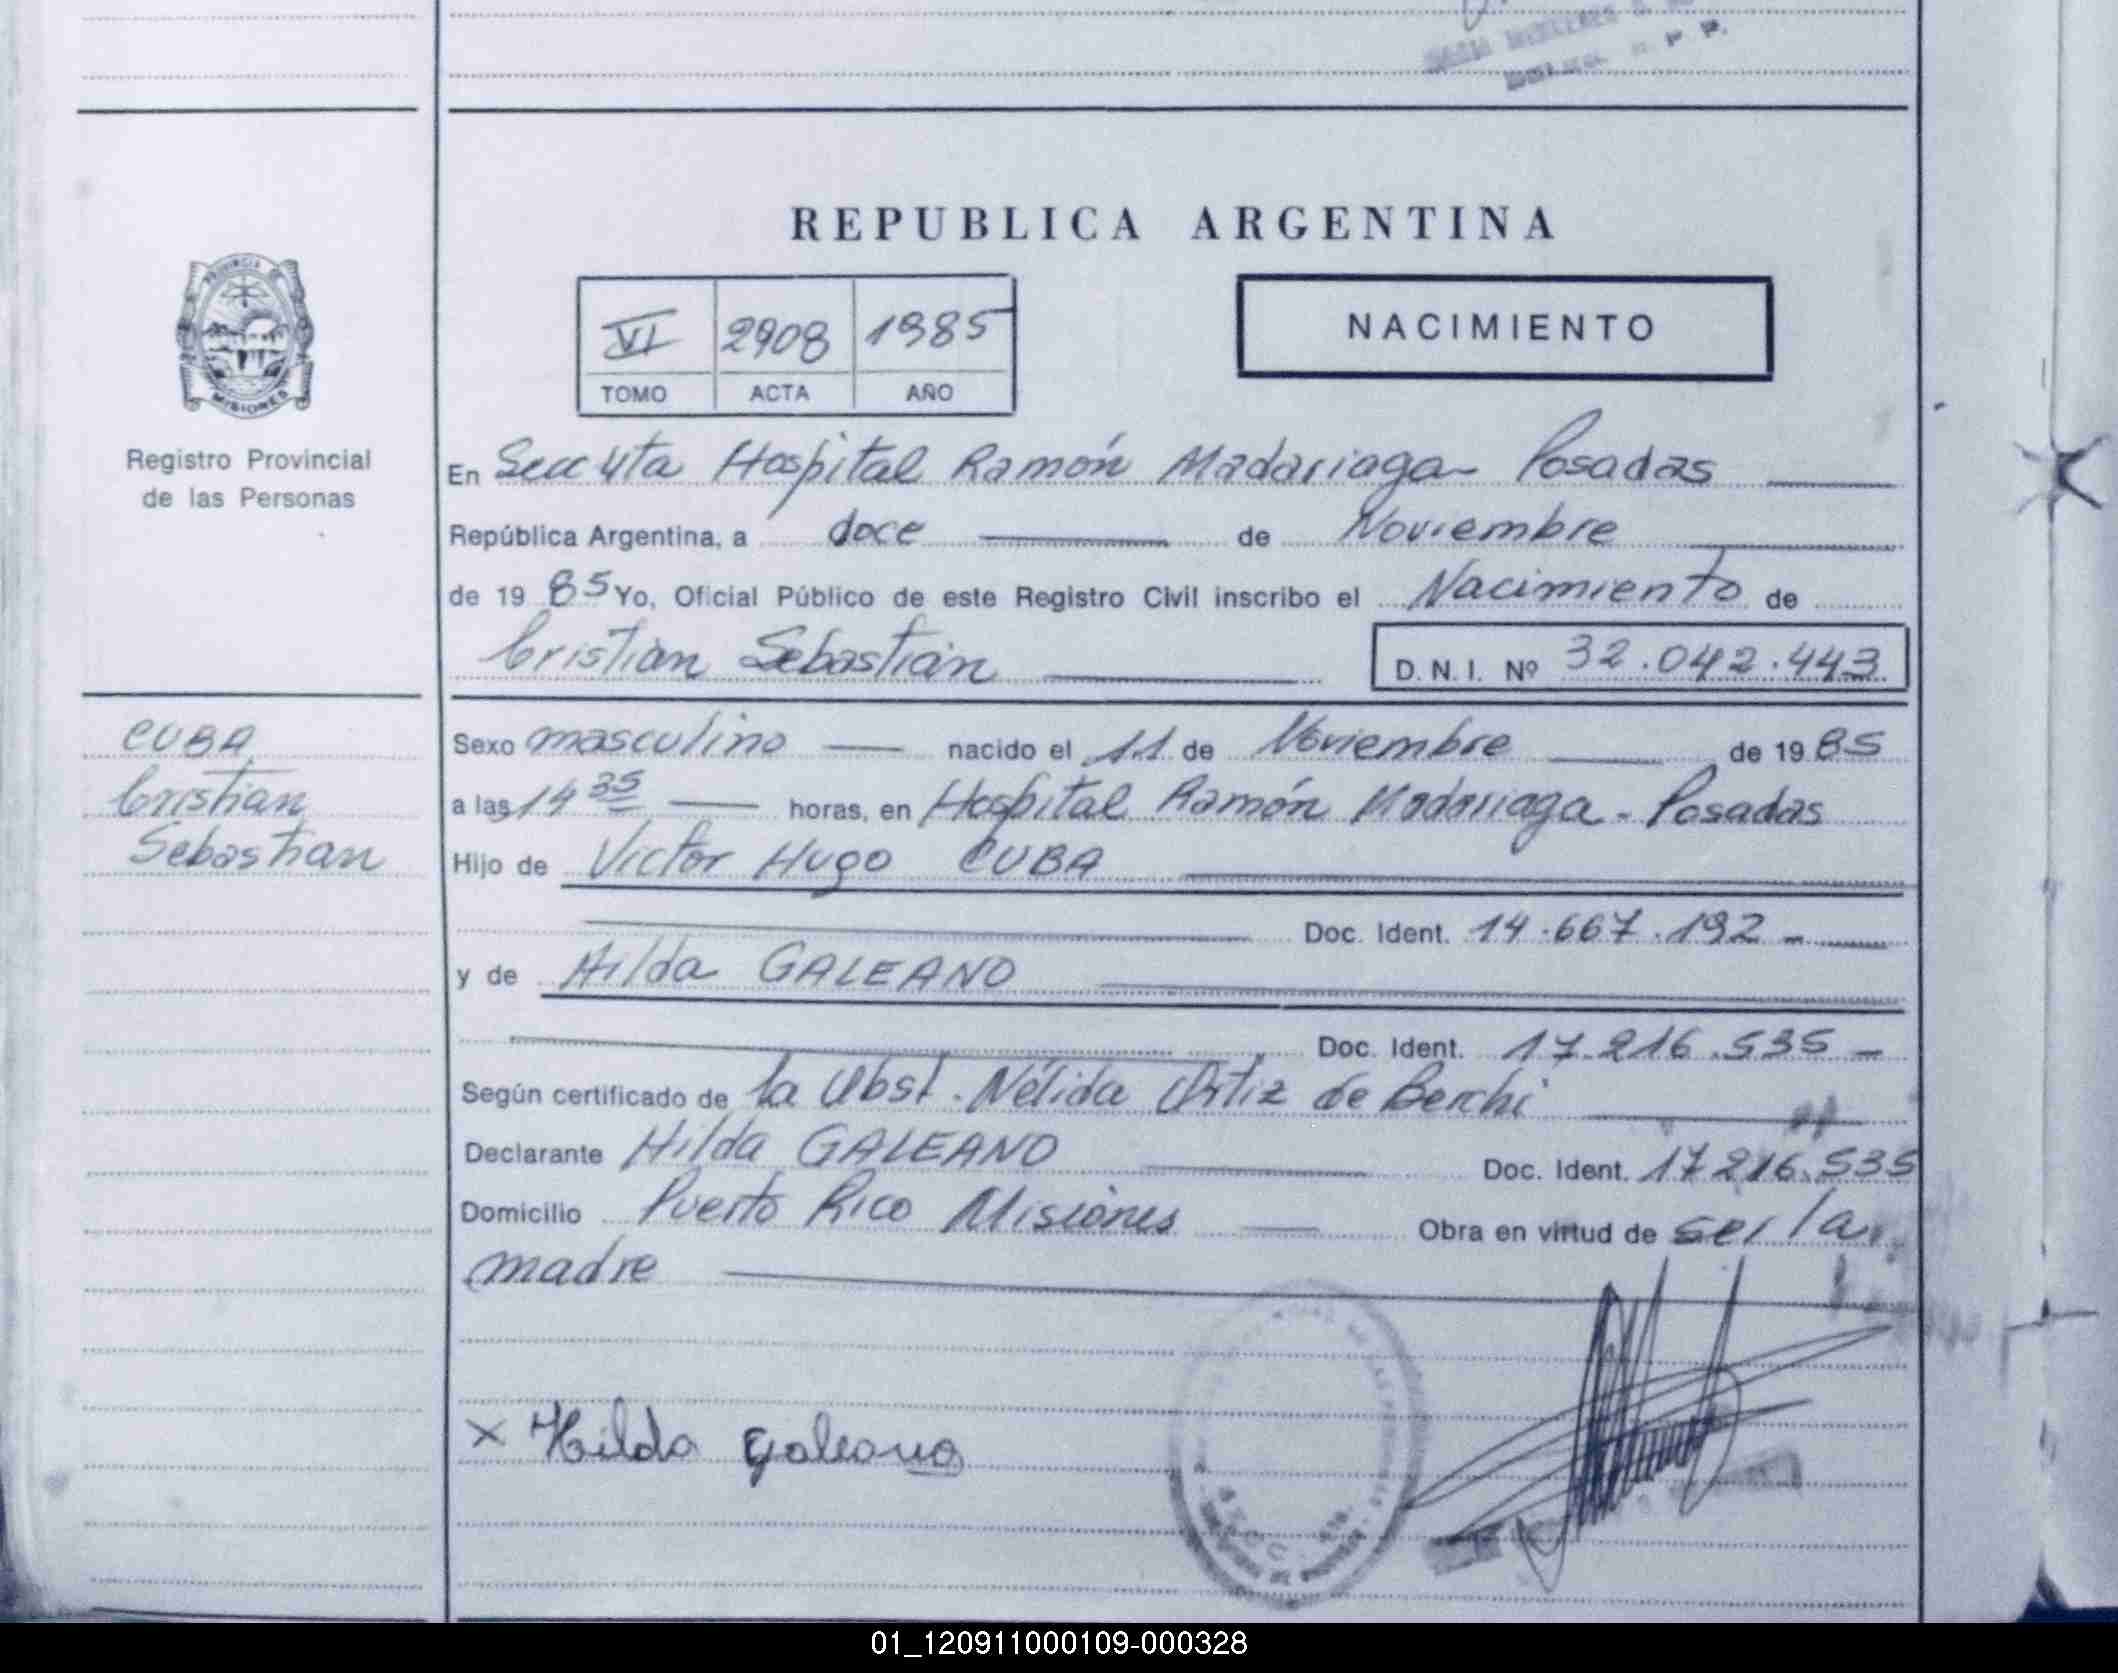 REPUBLICA ARGENTINA
VI 2908 1985
TOMO ACTA AÑO
NACIMIENTO
PROVINCIA DE
MISIONES
Registro Provincial
de las Personas
En Secc 4ta Hospital Ramón Madariaga - Posadas
República Argentina, a doce de Noviembre
de 19 85 Yo, Oficial Público de este Registro Civil inscribo el Nacimiento de
Cristian Sebastián
D. N. I. Nº 32.042.443
CUBA
Cristian
Sebastian
Sexo masculino nacido el 11 de Noviembre de 19 85
a las 14 35 horas, en Hospital Ramón Madariaga - Posadas
Hijo de Victor Hugo CUBA
Doc. Ident. 14.667.192 -
y de Hilda GALEANO
Doc. Ident. 17.216.535 -
Según certificado de la Obst. Nélida Ortiz de Berchi
Declarante Hilda GALEANO Doc. Ident. 17216.535
Domicilio Puerto Rico Misiones Obra en virtud de ser la
madre
x Hilda galeano
01_120911000109-000328